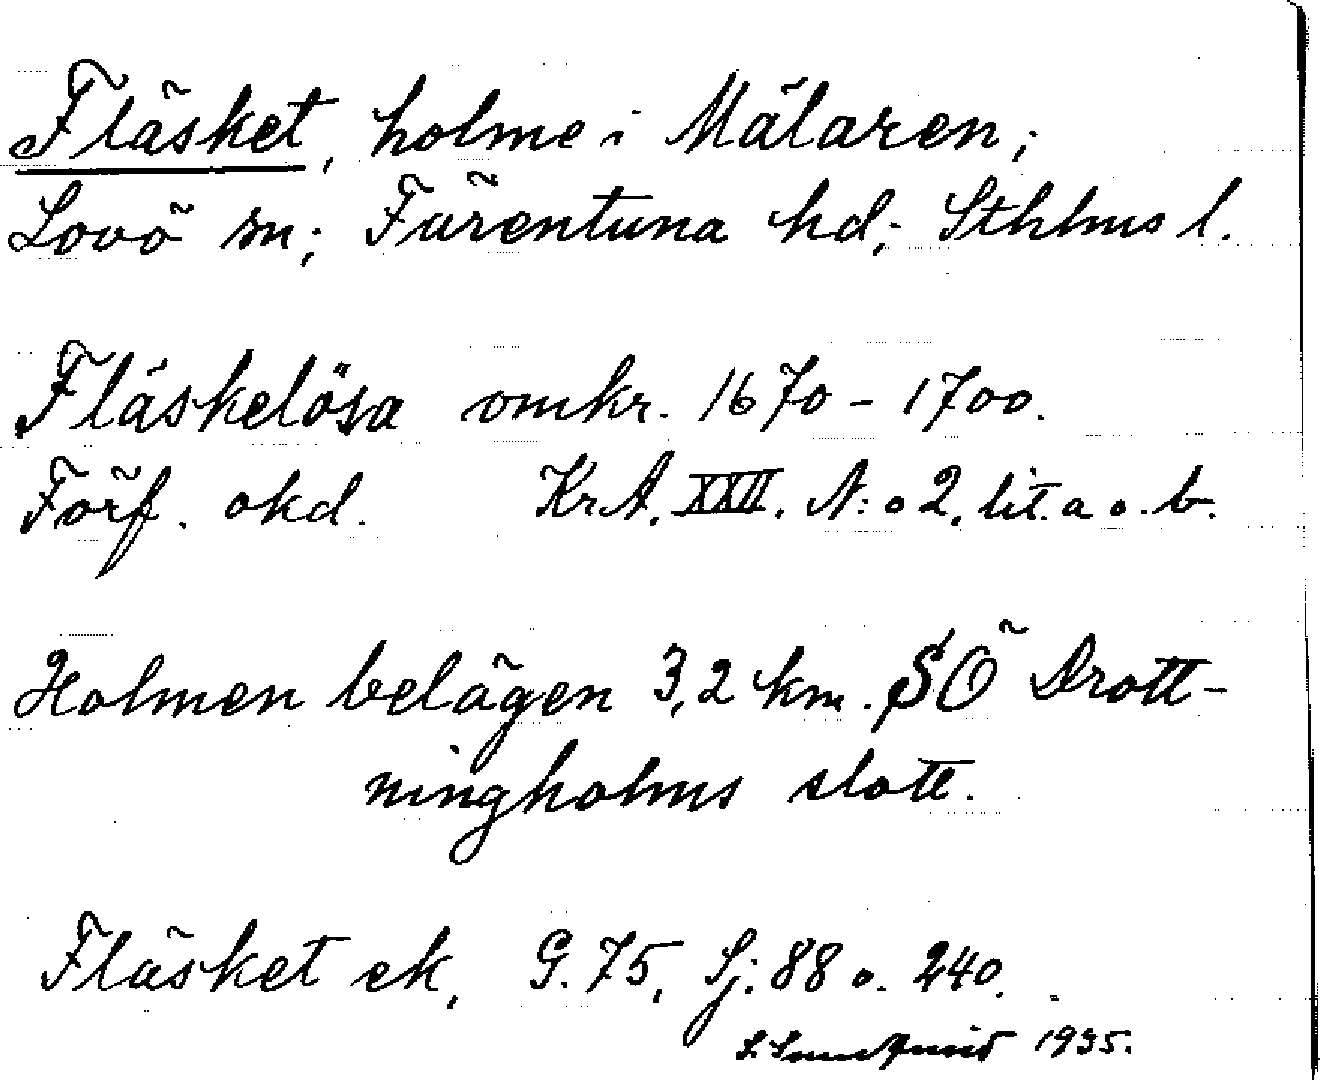 Fläsket, holme i Mälaren;
Lovö sn; Färentuna hd; Sthlms l.
Fläskelösa omkr. 1670-1700.
Förf. okd. KrA. XXII. N:o 2. lit. a o. b.
Holmen belägen 3,2 km. SÖ Drott-
ningholms slott.
Fläsket ek, G. 75, Sj: 88 o. 240.
1935.